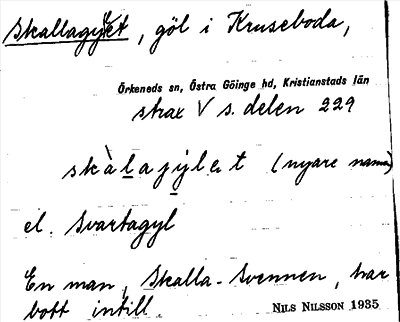 Skallagylet, göl i Kruseboda,
Örkeneds sn, Östra Göinge hd, Kristianstads län
strax V s. delen 229
skàlajyle t (nyare namn)
el. Svartagyl
En man, Skalla-Svennen, har
bott intill.
NILS NILSSON 1935